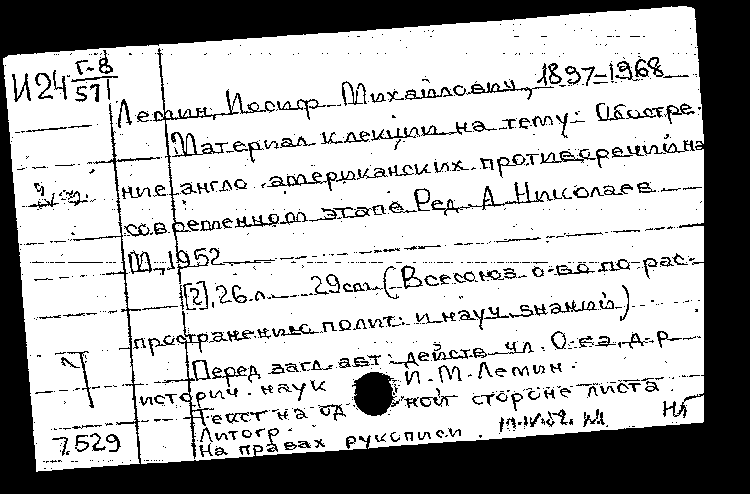 И24 Г-8
57
Лемин, Иосиф Михайлович, 1897-1968
Материал к лекции на тему: Обостре-
ние англо-американских противоречий на
современном этапе Ред. А. Николаев
М., 1952
[2], 26 л. 29 см. (Всесоюз. о-во по рас-
пространению полит. и науч. знаний)
Перед загл. авт.: действ. чл. О-ва, д-р
историч. наук И. М. Лемин.
Текст на одной стороне листа.
Литогр.
На правах рукописи.
7529